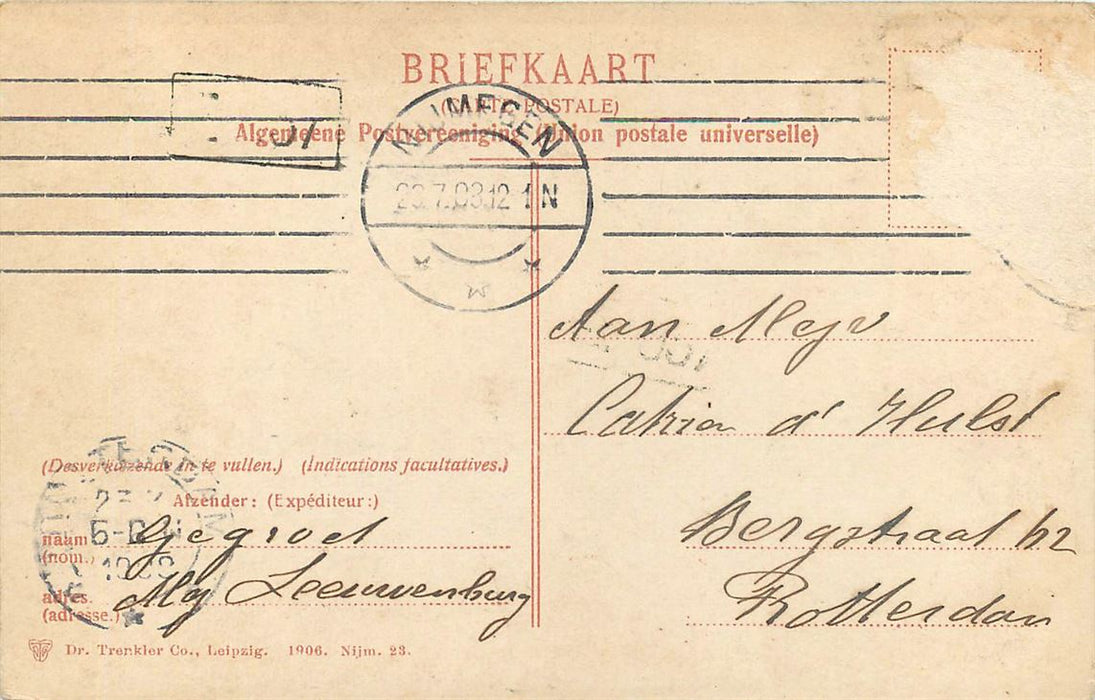 BRIEFKAART
(CARTE POSTALE)
Algemeene Postvereeniging (Union postale universelle)
NIJMEGEN
12-1 N
Aan Mejv
d' Hulst
Bergstraat 62
Rotterdam
(Desverkiezende in te vullen.) (Indications facultatives.)
Afzender: (Expéditeur:)
naam
(nom.)
Gegroet
adres.
(adresse.)
Mej Leeuwenburg
Dr. Trenkler Co., Leipzig. 1906. Nijm. 23.